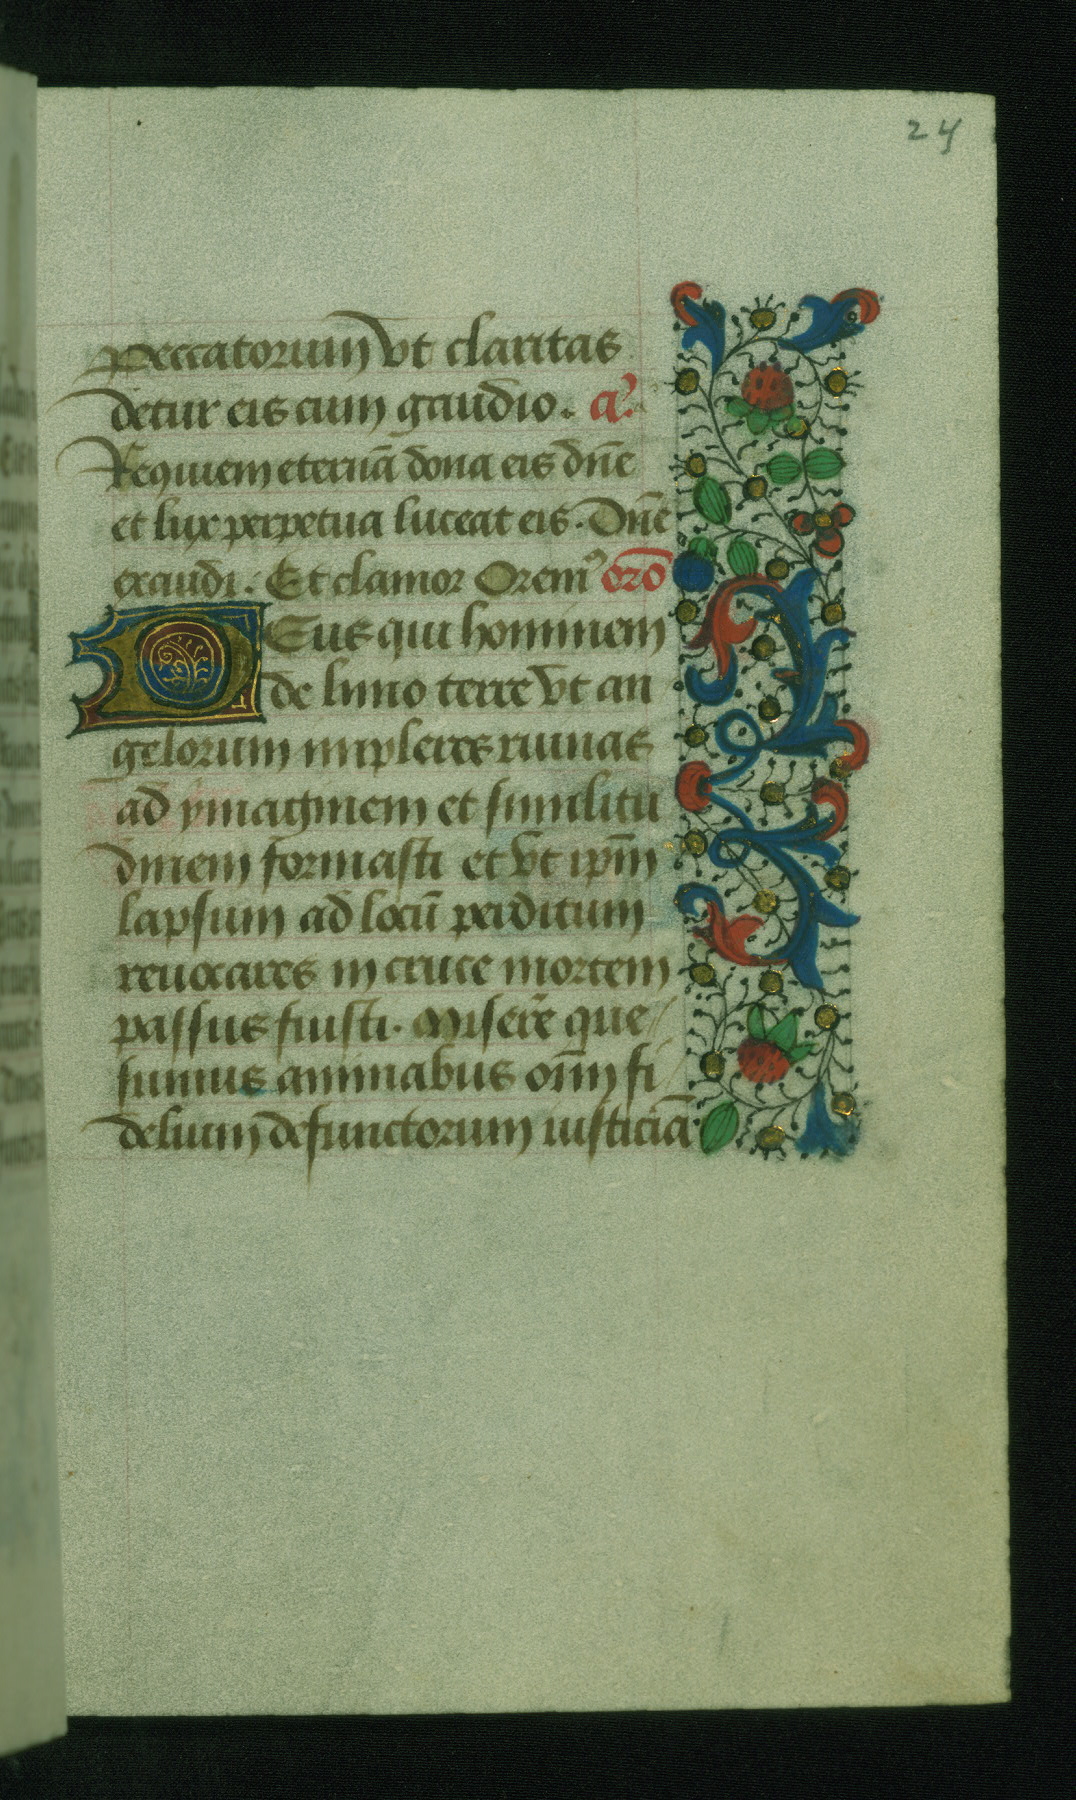 24
peccatorum vt claritas
detur eis cum gaudio. a'.
Requiem eternā dona eis dn̄e
et lux perpetua luceat eis. Dn̄e
exaudi. Et clamor Orem' or̄o
Deus qui hominem
de limo terre vt an
gelorum impleres ruinas
ad ymaginem et similitu
dinem formasti et vt ip̄m
lapsum ad locū perditum
reuocares in cruce mortem
passus fuisti. Miserē que
sumus animabus om̄n fi
delium defunctorum iusticiā